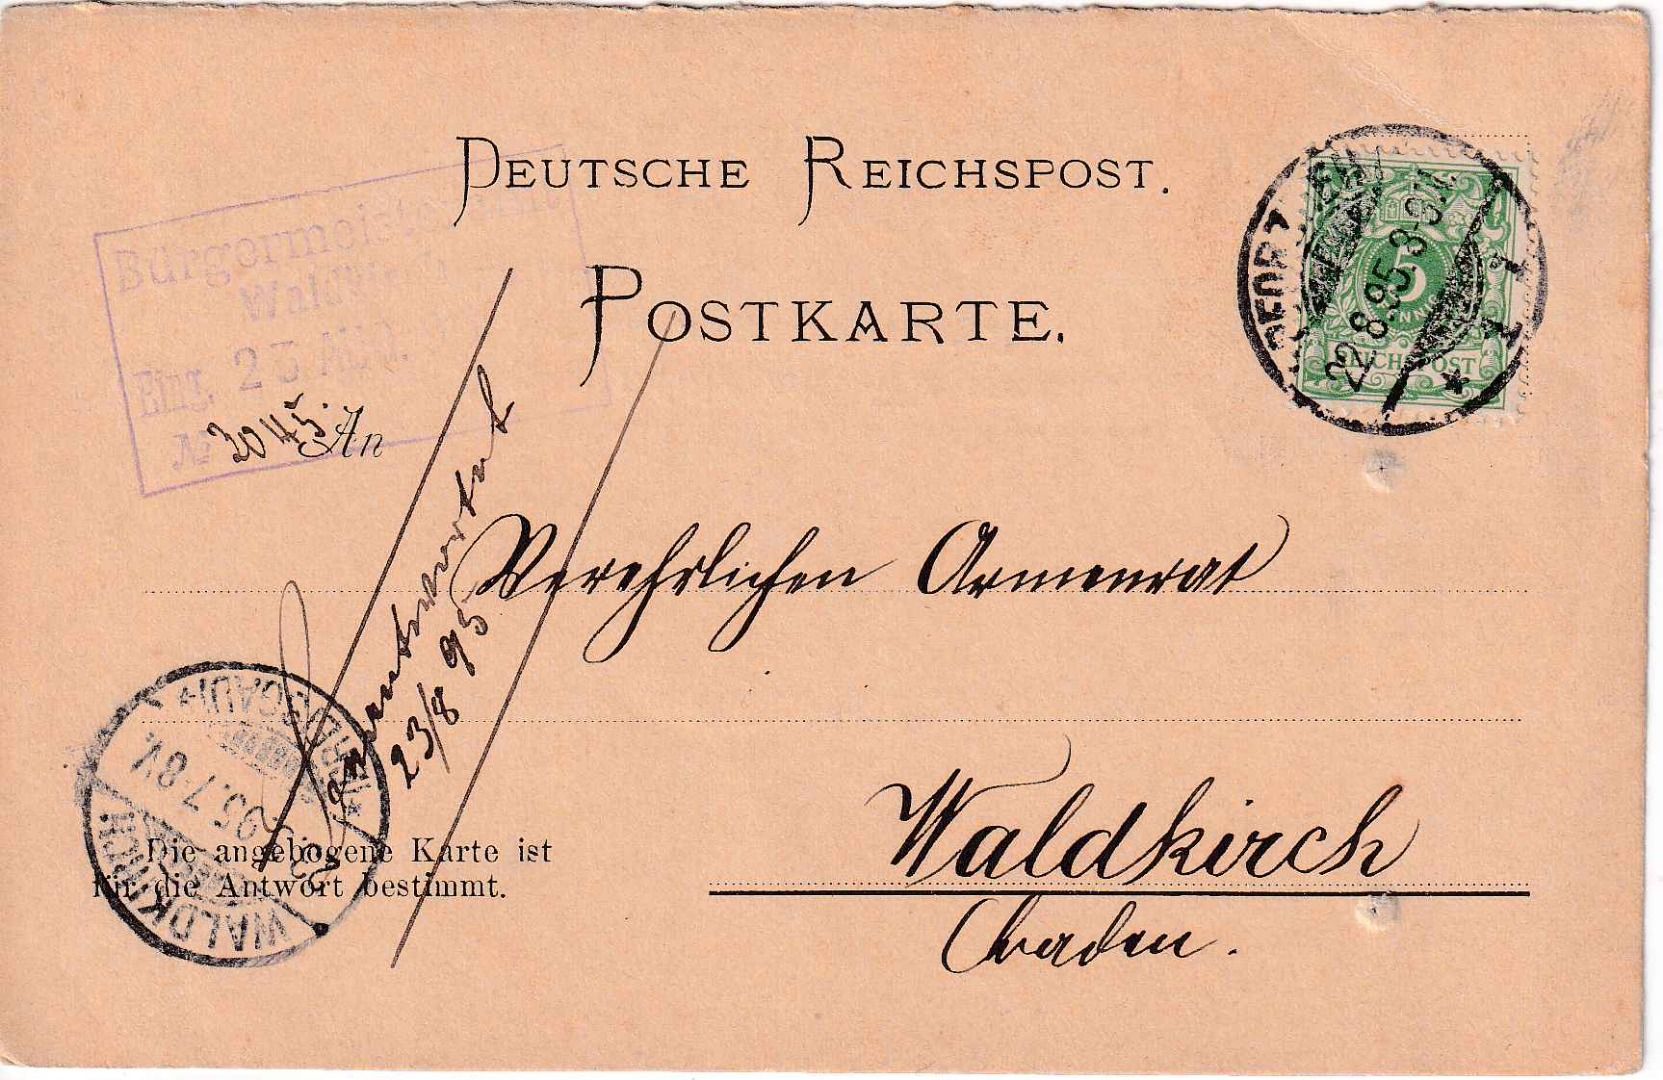 DEUTSCHE REICHSPOST.
POSTKARTE.
Bürgermeisteramt
Waldkirch
Eing. 23. AUG.
№ 3045.
An
PFORZHEIM
22.8.95.3-
5
REICHSPOST
Verehrlichen Armenrat
Waldkirch
Baden.
beantwortet
23/8 95
WALDKIRCH
(BREISGAU)
95.7-8V.
Die angebogene Karte ist
für die Antwort bestimmt.